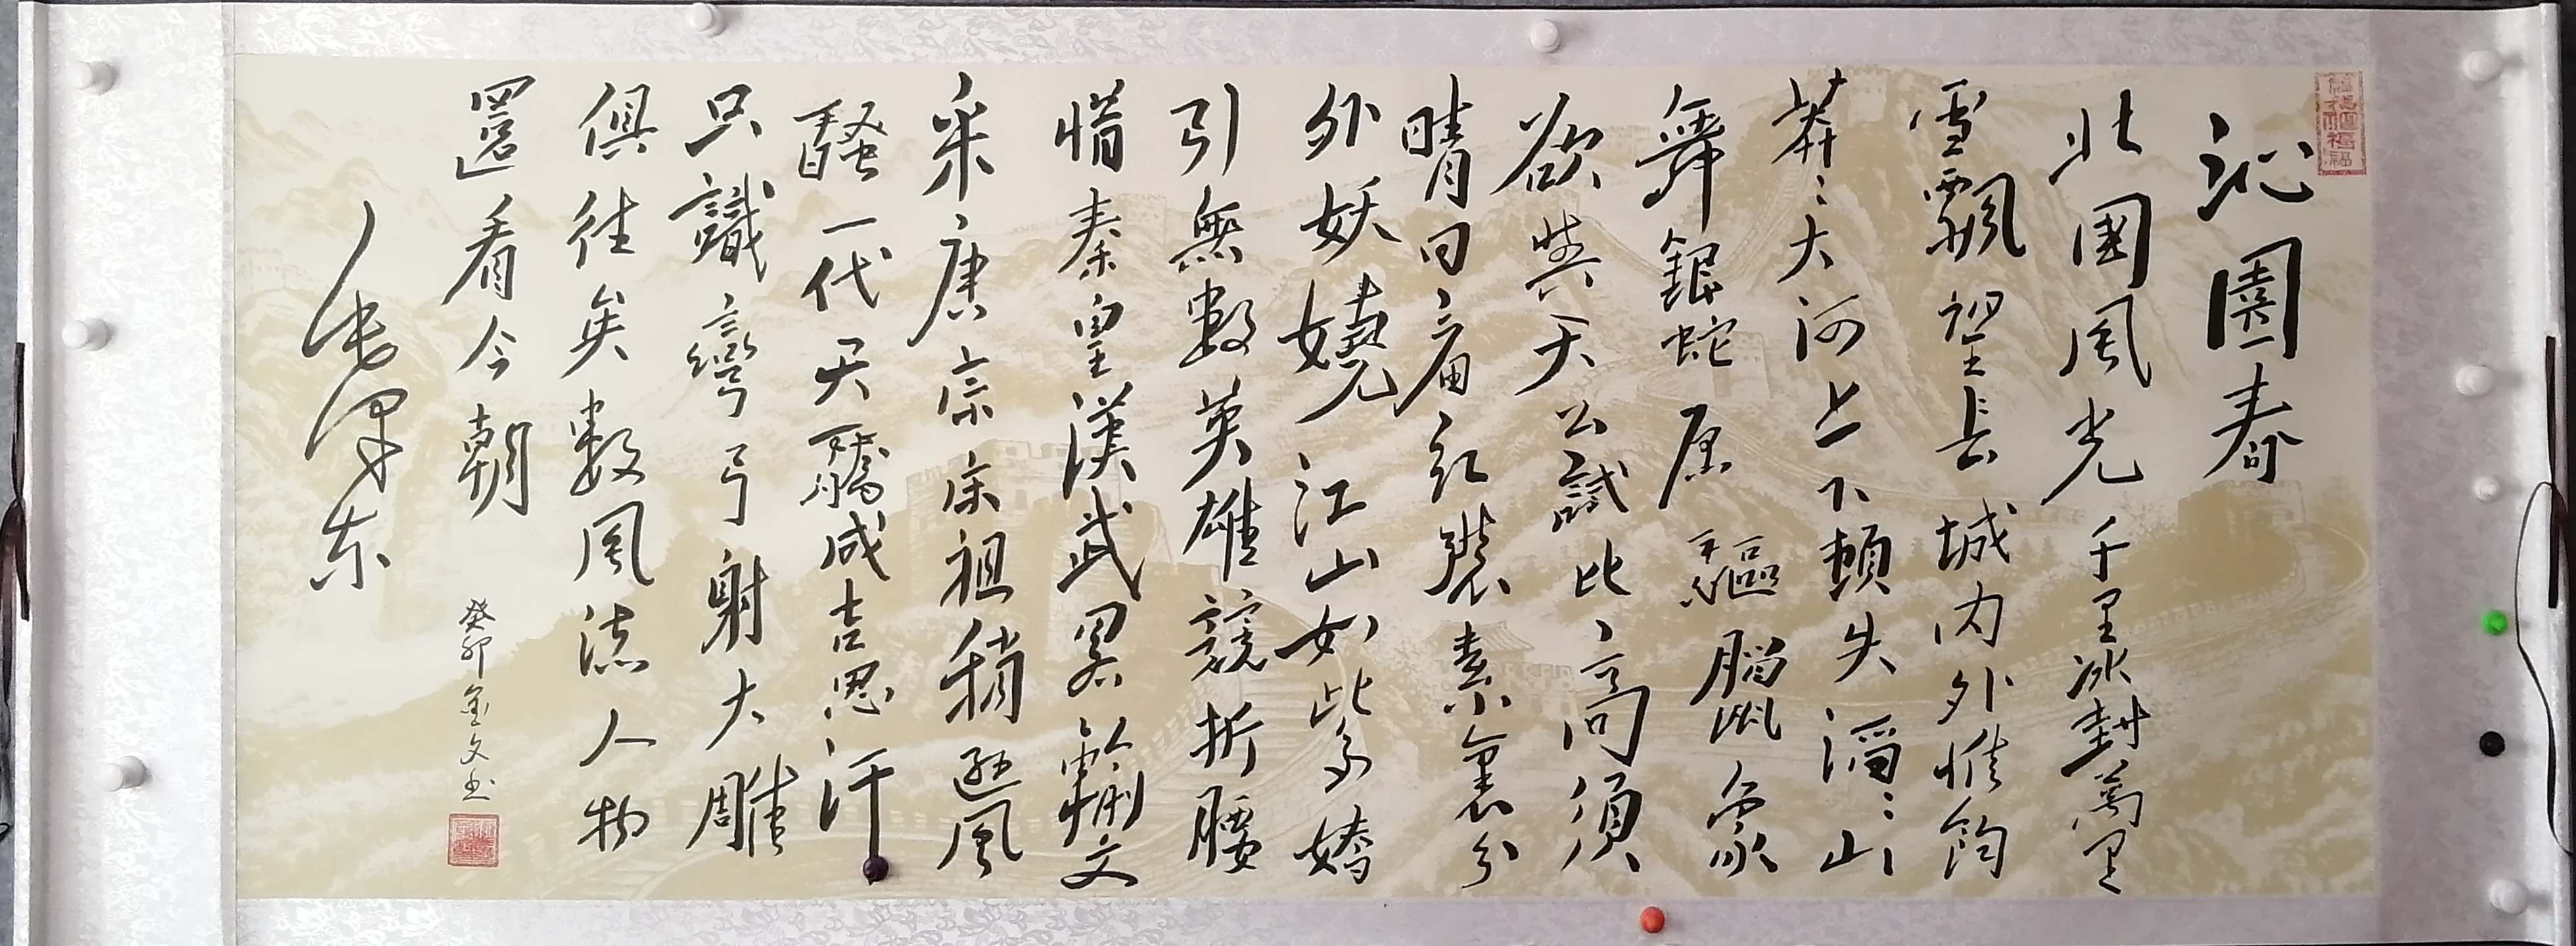 沁園春
北國風光千里冰封萬里
雪飄望長城内外惟餘
莽〻大河上下頓失滔〻山
舞銀蛇原驅臘象
欲與天公試比高須
晴日看紅裝素裹分
外妖嬈江山如此多嬌
引無數英雄競折腰
惜秦皇漢武畧輸文
采唐宗宋祖稍遜風
騷一代天驕成吉思汗
只識彎弓射大雕
俱往矣數風流人物
還看今朝
毛澤東
癸卯金文书